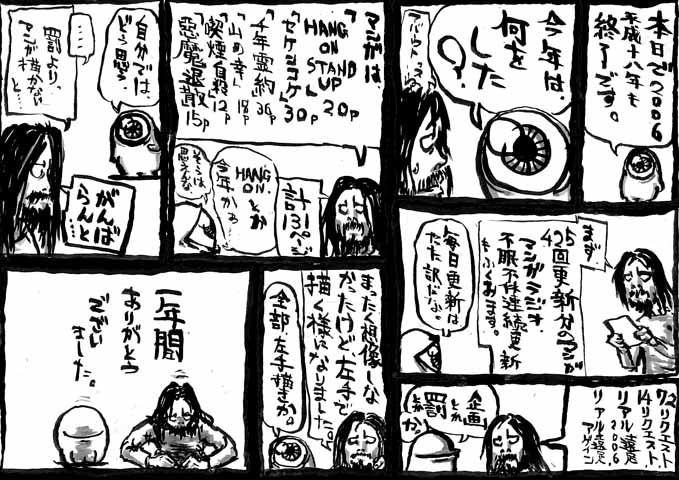 本日で2006
平成十八年も
終了です。
今年は
何を
した
?
まず
425
回更新分のマンガ
マンガラジオ
不眠不休連続更新
もふくめます。
毎日更新は
だった訳だな。
72リクエスト
14リクエスト.
リアル遠足
2006.
リアル遠足
アゲイン
企画
とか
罰
とか
マンガは、
「HANG
ON
STAND
UP」
20p
「セケンコケ」
30p
「千年霊約」
36p
「山の幸」
18p
「喫煙自殺」
12p
「悪魔退散」
15p
計131ページ
HANG
ON.とか
今年かぁ…
そうは
思えんな。
自分では、
どう思う。
……
罰より、
マンガ描かない
と…
がんば
らんと…
まったく想像しな
かったけど左手で
描く様になりました。
全部左手描きか。
一年間
ありがとう
ござい
ました。